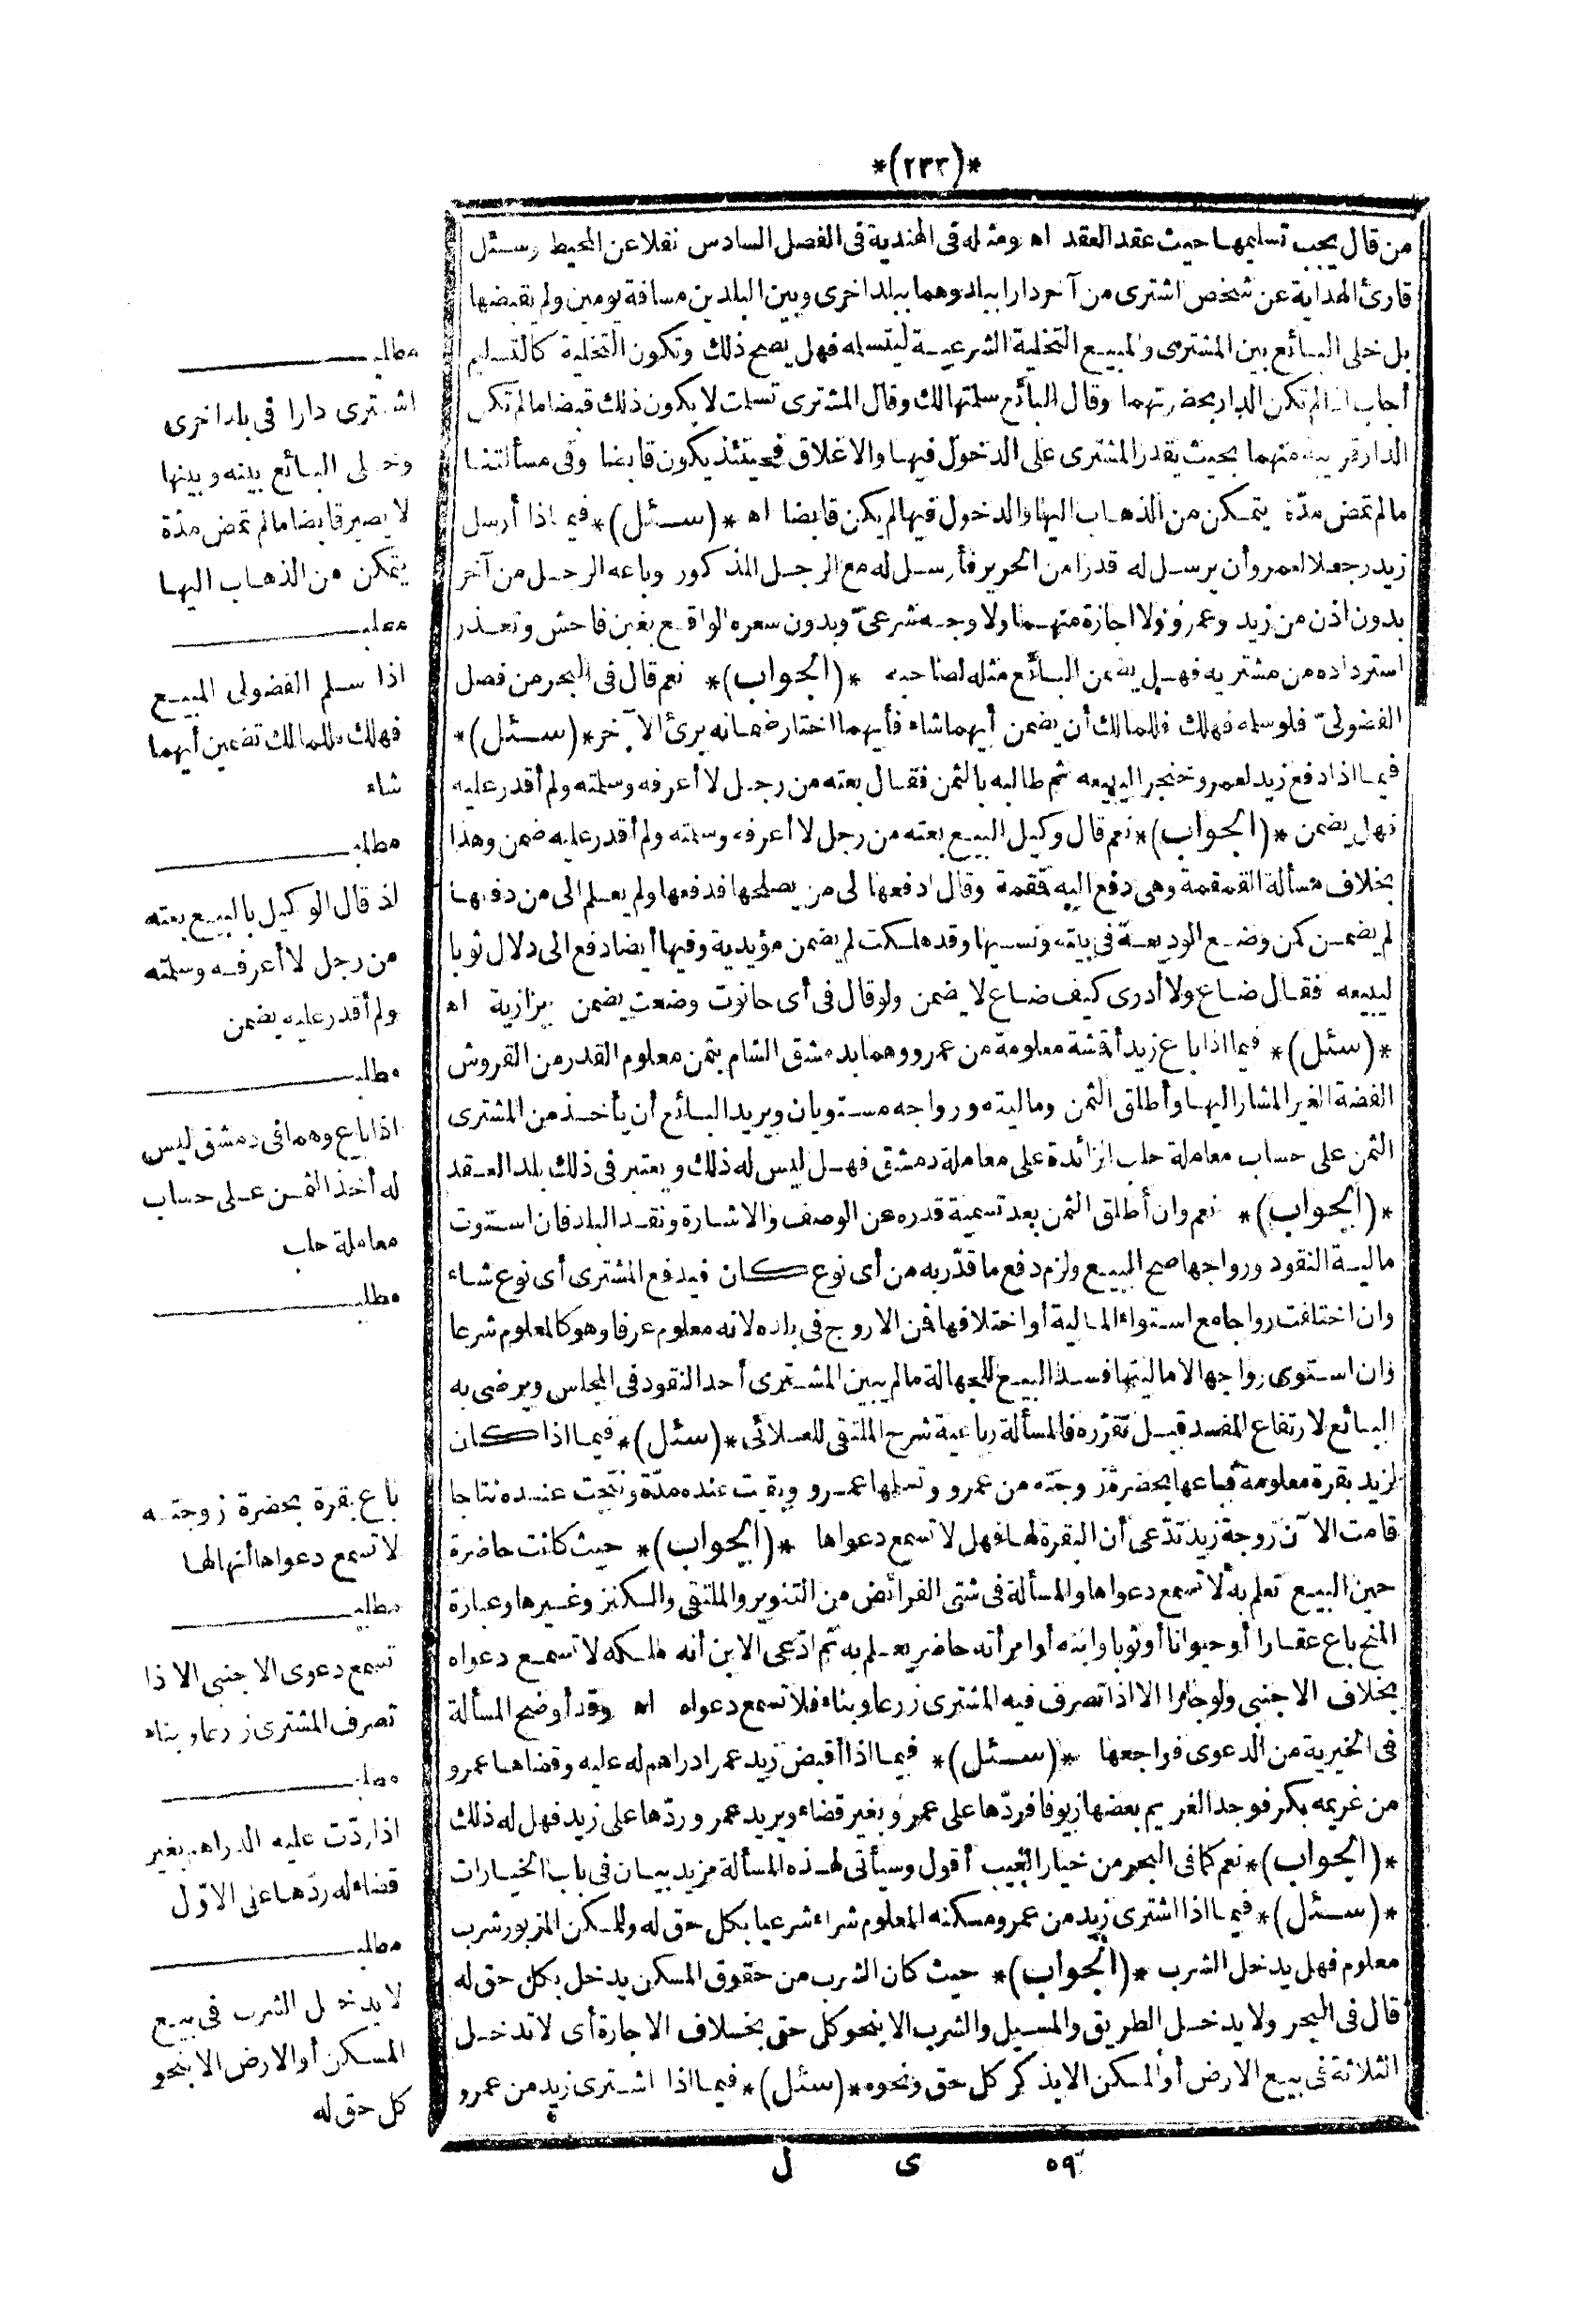 *(٢٣٣)*
من قال يجب تسليمها حيث عقد العقد اه ومثله فى الهندية فى الفصل السادس نقلا عن المحيط وسئل
قارئ الهداية عن شخص اشترى من آخر دارا ببلد وهما ببلد اخرى وبين البلدين مسافة يومين ولم يقبضها
بل خلى البائع بين المشترى والمبيع التخلية الشرعية ليتسلمه فهل يصح ذلك وتكون التخلية كالتسليم
أجاب اذا لم تكن الدار بحضرتهما وقال البائع سلمتها لك وقال المشترى تسلمت لا يكون ذلك قبضا ما لم تكن
الدار قريبة منهما بحيث يقدر المشترى على الدخول فيها والاغلاق فحينئذ يكون قابضا وفى مسألتنا
ما لم تمض مدّة يتمكن من الذهاب اليها والدخول فيها لم يكن قابضا اه *(سئل)* فيما اذا أرسل
زيد رجلا لعمرو أن يرسل له قدرا من الحرير فأرسل له مع الرجل المذكور وباعه الرجل من آخر
بدون اذن من زيد وعمرو ولا اجازة منهما ولا وجه شرعىّ وبدون سعره الواقع بغبن فاحش وتعذر
استرداده من مشتريه فهل يضمن البائع مثله لصاحبه *(الجواب)* نعم قال فى البحر من فصل
الفضولىّ فلو سلمه فهلك فللمالك أن يضمن أيهما شاء فأيهما اختار ضمانه برئ الآخر *(سئل)*
فيما اذا دفع زيد لعمرو خنجرا ليبيعه ثم طالبه بالثمن فقال بعته من رجل لا أعرفه وسلمته ولم أقدر عليه
فهل يضمن *(الجواب)* نعم قال وكيل البيع بعته من رجل لا أعرفه وسلمته ولم أقدر عليه ضمن وهذا
بخلاف مسألة القمقمة وهى دفع اليه قمقمة وقال ادفعها لى من يصلحها فدفعها ولم يعلم الى من دفعها
لم يضمن كمن وضع الوديعة فى بيته ونسيها وقد هلكت لم يضمن مؤيدية وفيها أيضا دفع الى دلال ثوبا
ليبيعه فقال ضاع ولا أدرى كيف ضاع لا يضمن ولو قال فى أى حانوت وضعت يضمن بزازية اه
*(سئل)* فيما اذا باع زيد أقشة معلومة من عمرو وهما بدمشق الشام بثمن معلوم القدر من القروش
الفضة الغير المشار اليها وأطلق الثمن وماليته ورواجه مستويان ويريد البائع أن يأخذ من المشترى
الثمن على حساب معاملة حلب الزائدة على معاملة دمشق فهل ليس له ذلك ويعتبر فى ذلك بلد العقد
*(الجواب)* نعم وان أطلق الثمن بعد تسمية قدره عن الوصف والاشارة ونقد البلد فان استوت
مالية النقود ورواجها صح المبيع ولزم دفع ما قدّر به من أى نوع كان فيدفع المشترى أى نوع شاء
وان اختلفت رواجا مع استواء المالية أو اختلافها فمن الاروج فى بلده لانه معلوم عرفا وهو كالمعلوم شرعا
وان استوى رواجها لا ماليتها فسد البيع للجهالة ما لم يبين المشترى أحد النقود فى المجلس ويرضى به
البائع لارتفاع المفسد قبل تقرّره فالمسألة رباعية شرح الملتقى للعلائى *(سئل)* فيما اذا كان
لزيد بقرة معلومة فباعها بحضرة زوجته من عمرو وتسلمها عمرو وبقيت عنده مدّة ونتجت عنده نتاجا
قامت الآن زوجة زيد تدّعى أن البقرة لها فهل لا تسمع دعواها *(الجواب)* حيث كانت حاضرة
حين البيع تعلم به لا تسمع دعواها والمسألة فى شتى الفرائض من التنوير والملتقى والكنز وغيرها وعبارة
المنح باع عقارا أو حيوانا أو ثوبا وابنه أو امرأته حاضر يعلم به ثم ادّعى الابن أنه ملكه لا تسمع دعواه
بخلاف الاجنبى ولو جارا الا اذا تصرف فيه المشترى زرعا وبناء فلا تسمع دعواه اه وقد أوضح المسألة
فى الخيرية من الدعوى فراجعها *(سئل)* فيما اذا أقبض زيد عمرا دراهم له عليه وقضاها عمرو
من غريمه بكر فوجد الغريم بعضها زيوفا فردّها على عمرو بغير قضاء ويريد عمرو ردّها على زيد فهل له ذلك
*(الجواب)* نعم كما فى البحر من خيار العيب أقول وسيأتى لهذه المسألة مزيد بيان فى باب الخيارات
*(سئل)* فيما اذا اشترى زيد من عمرو مسكنه المعلوم شراء شرعيا بكل حق له وللمسكن المزبور شرب
معلوم فهل يدخل الشرب *(الجواب)* حيث كان الشرب من حقوق المسكن يدخل بكل حق له
قال فى البحر ولا يدخل الطريق والمسيل والشرب الا بنحو كل حق بخلاف الاجارة أى لا تدخل
الثلاثة فى بيع الارض أو المسكن الا بذكر كل حق ونحوه *(سئل)* فيما اذا اشترى زيد من عمرو
٥٩ ى ل
مطلب
اشترى دارا فى بلد اخرى
وخلى البائع بينه وبينها
لا يصير قابضا ما لم تمض مدّة
يتمكن من الذهاب اليها
مطلب
اذا سلم الفضولى المبيع
فهلك فللمالك تضمين أيهما
شاء
مطلب
اذ قال الوكيل بالبيع بعته
من رجل لا أعرفه وسلمته
ولم أقدر عليه يضمن
مطلب
اذا باع وهما فى دمشق ليس
له أخذ الثمن على حساب
معاملة حلب
مطلب
باع بقرة بحضرة زوجته
لا تسمع دعواها أنها لها
مطلب
تسمع دعوى الاجنبى الا اذا
تصرف المشترى زرعا وبناء
مطلب
اذا ردّت عليه الدراهم بغير
قضاء له ردّها على الاوّل
مطلب
لا يدخل الشرب فى بيع
المسكن أو الارض الا بنحو
كل حق له